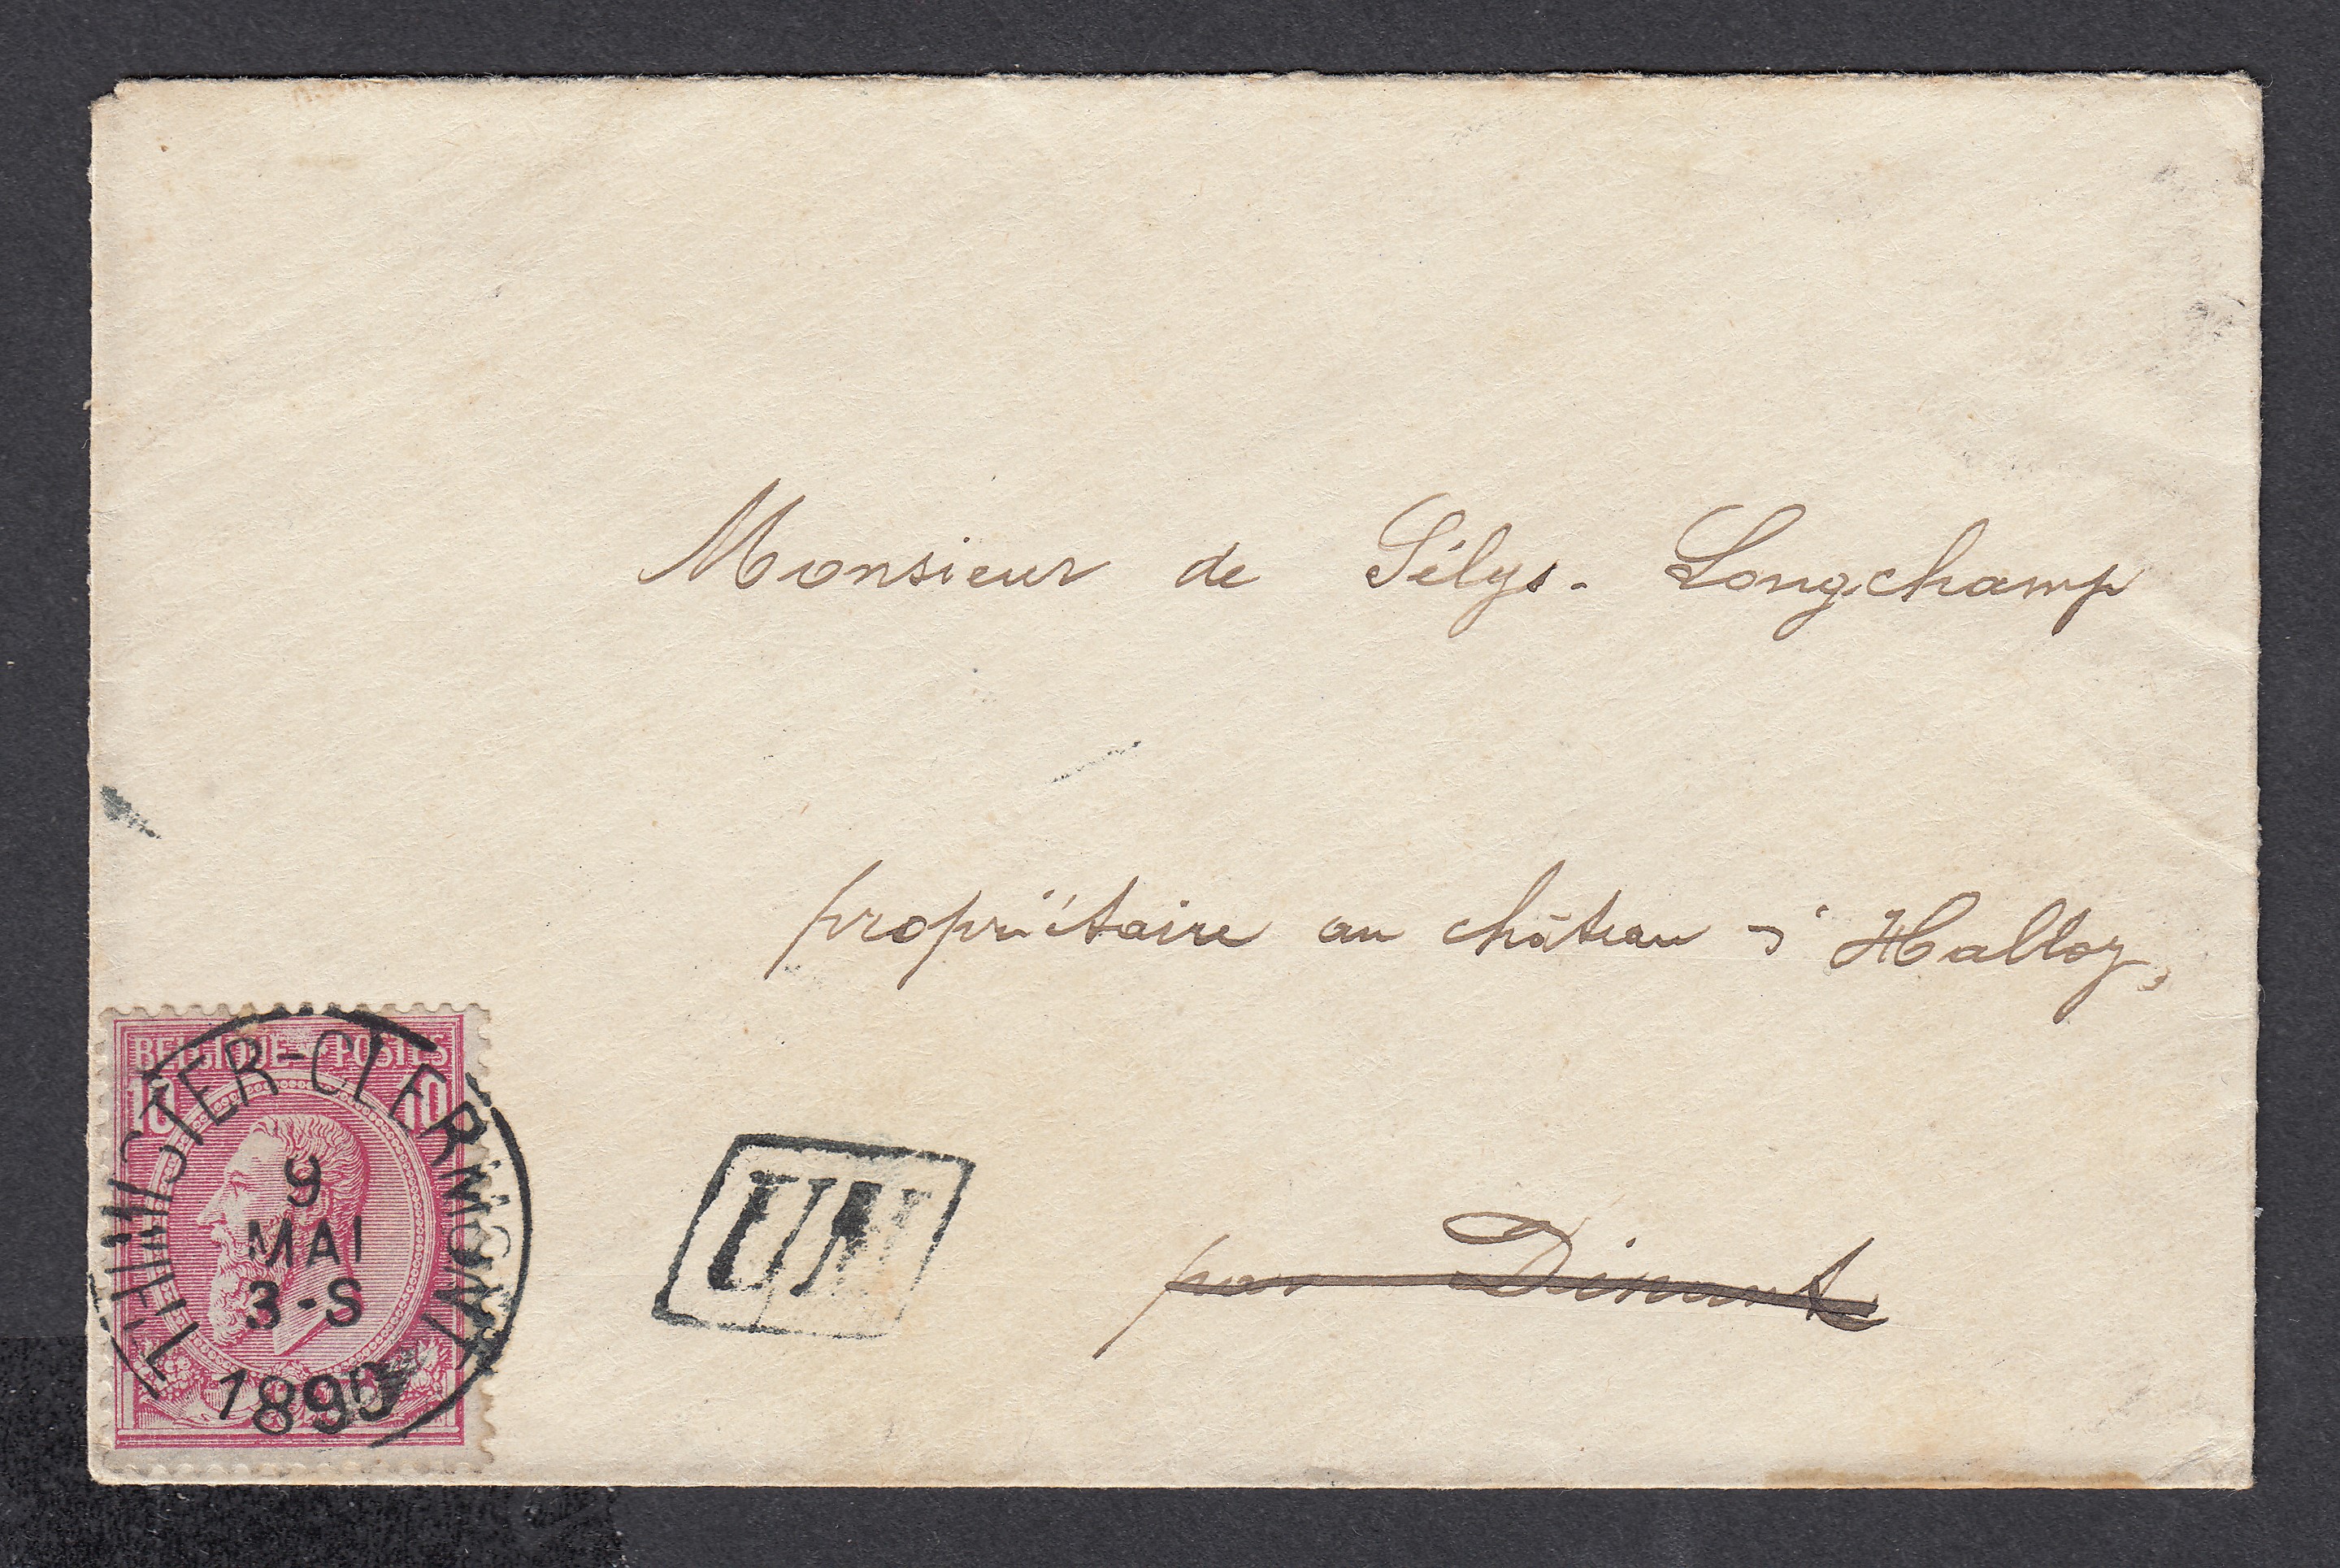 Monsieur de Sélys-Longchamp
propriétaire au château à Halloy,
par Dinant
BELGIQUE POSTES
10 10
THIMISTER-CLERMONT
9
MAI
3-S
1890
UN